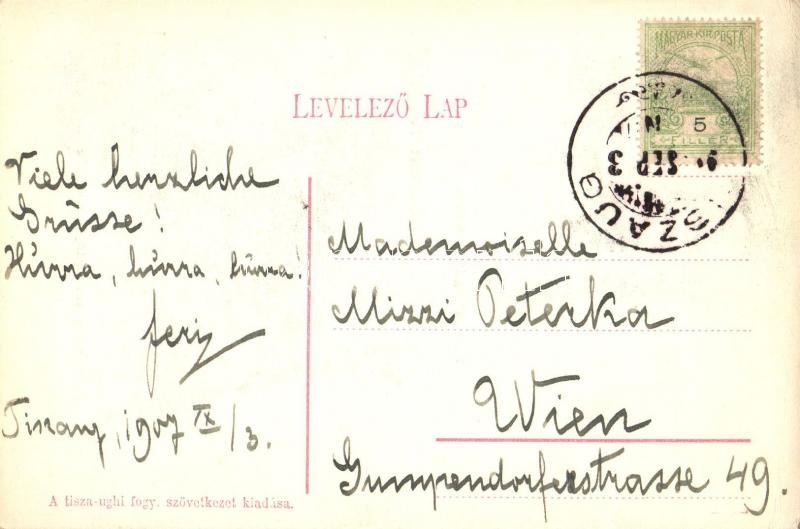 LEVELEZŐ LAP
MAGYAR KIR. POSTA
5
FILLÉR
SEP 3
Viele herzliche
Grüsse!
Húrra, húrra, húrra!
Feri
1907 IX/3.
Mademoiselle
Mizzi Peterka
Wien
Gumpendorferstrasse 49.
A tisza-ughi fogy. szövetkezet kiadása.